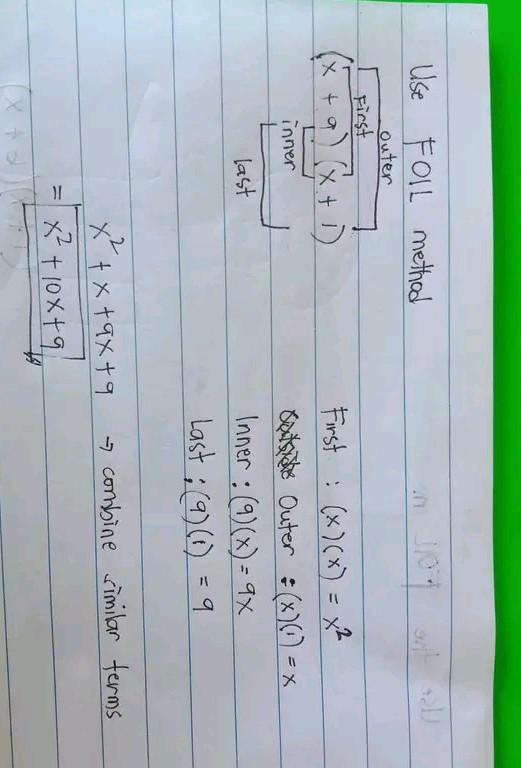 Use FOIL method
outer
First
(x + 9) (x + 1)
inner
last
First : (x)(x) = x²
Outer : (x)(1) = x
Inner : (9)(x) = 9x
Last : (9)(1) = 9
x² + x + 9x + 9 → combine similar terms
= x² + 10x + 9